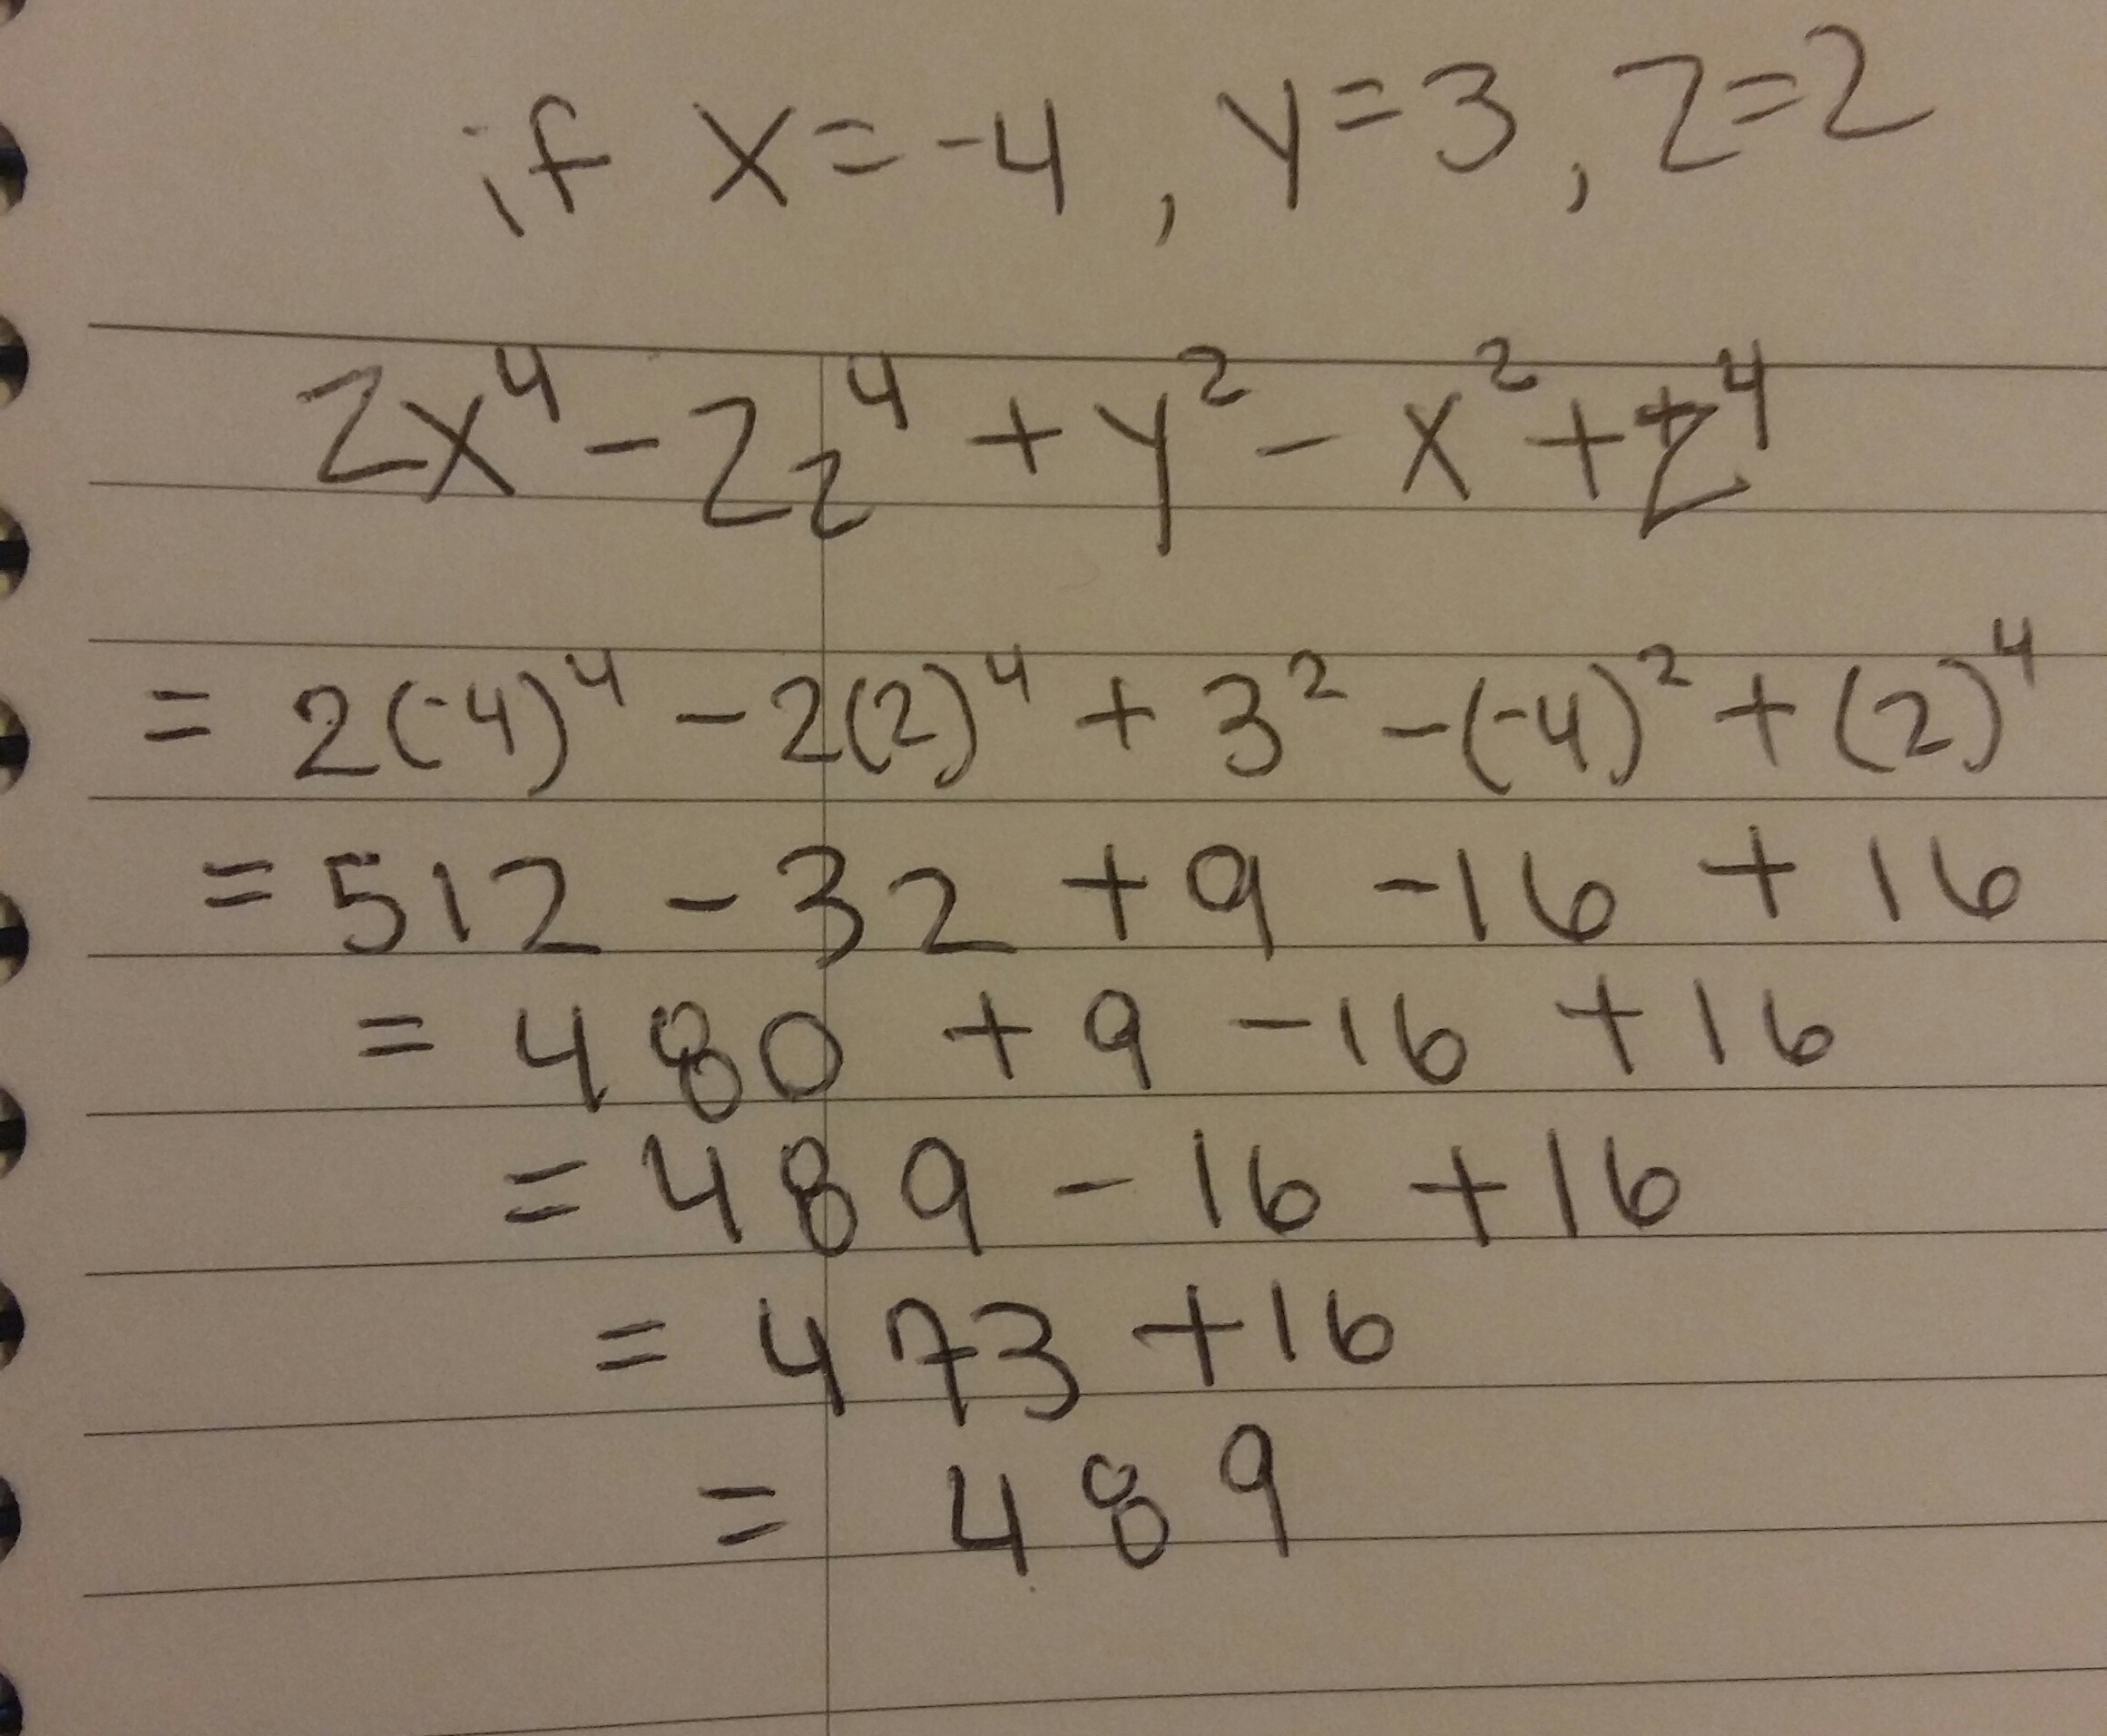 if x=-4, y=3, z=2
2x⁴-2z⁴+y²-x²+z⁴
=2(-4)⁴-2(2)⁴+3²-(-4)²+(2)⁴
=512-32+9-16+16
=480+9-16+16
=489-16+16
=473+16
=489